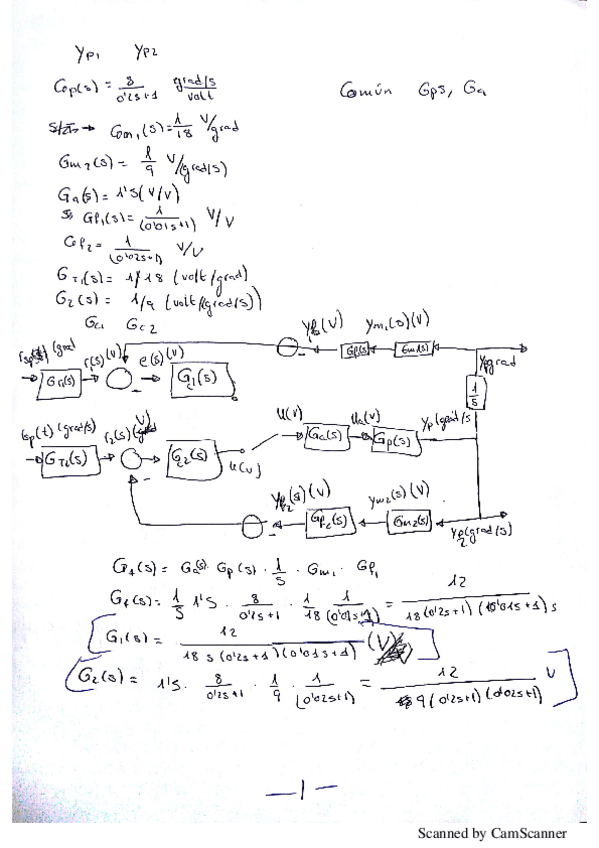 Yp1 Yp2
Gp(s) = 8/(0'2s+1) grad/s / volt
Común Gps, Ga
Gm1(s) = 1/18 V/grad
Gm2(s) = 1/9 V/(grad/s)
Ga(s) = 1'5 (V/V)
Gf1(s) = 1/(0'01s+1) V/V
Gf2 = 1/(0'02s+1) V/V
GT1(s) = 1/18 (volt/grad)
G2(s) = 1/9 (volt/(grad/s))
Gc1 Gc2
(V) ym1(s)(V)
(grad r1(s)(V) e(s)(V) Gf(s) Gm1(s) yp grad
Gr(s) Gc1(s) 1/s
(t)(grad/s) r2(s) V) u(V) ua(V) yp(grad/s
GT2(s) Gc2(s) u(V) Ga(s) Gp(s)
yf2(s)(V) ym2(s)(V)
Gf2(s) Gm2(s) yp2(grad/s)
G1(s) = Ga(s) · Gp(s) · 1/s · Gm1 · Gf1
G1(s) = 1/s 1'5 · 8/(0'2s+1) · 1/18 · 1/(0'01s+1) = 12/(18(0'2s+1)(0'01s+1)s)
G1(s) = 12/(18 s (0'2s+1)(0'01s+1)) (V)
G2(s) = 1'5 · 8/(0'2s+1) · 1/9 · 1/(0'02s+1) = 12/(9(0'2s+1)(0'02s+1)) V
—1—
Scanned by CamScanner